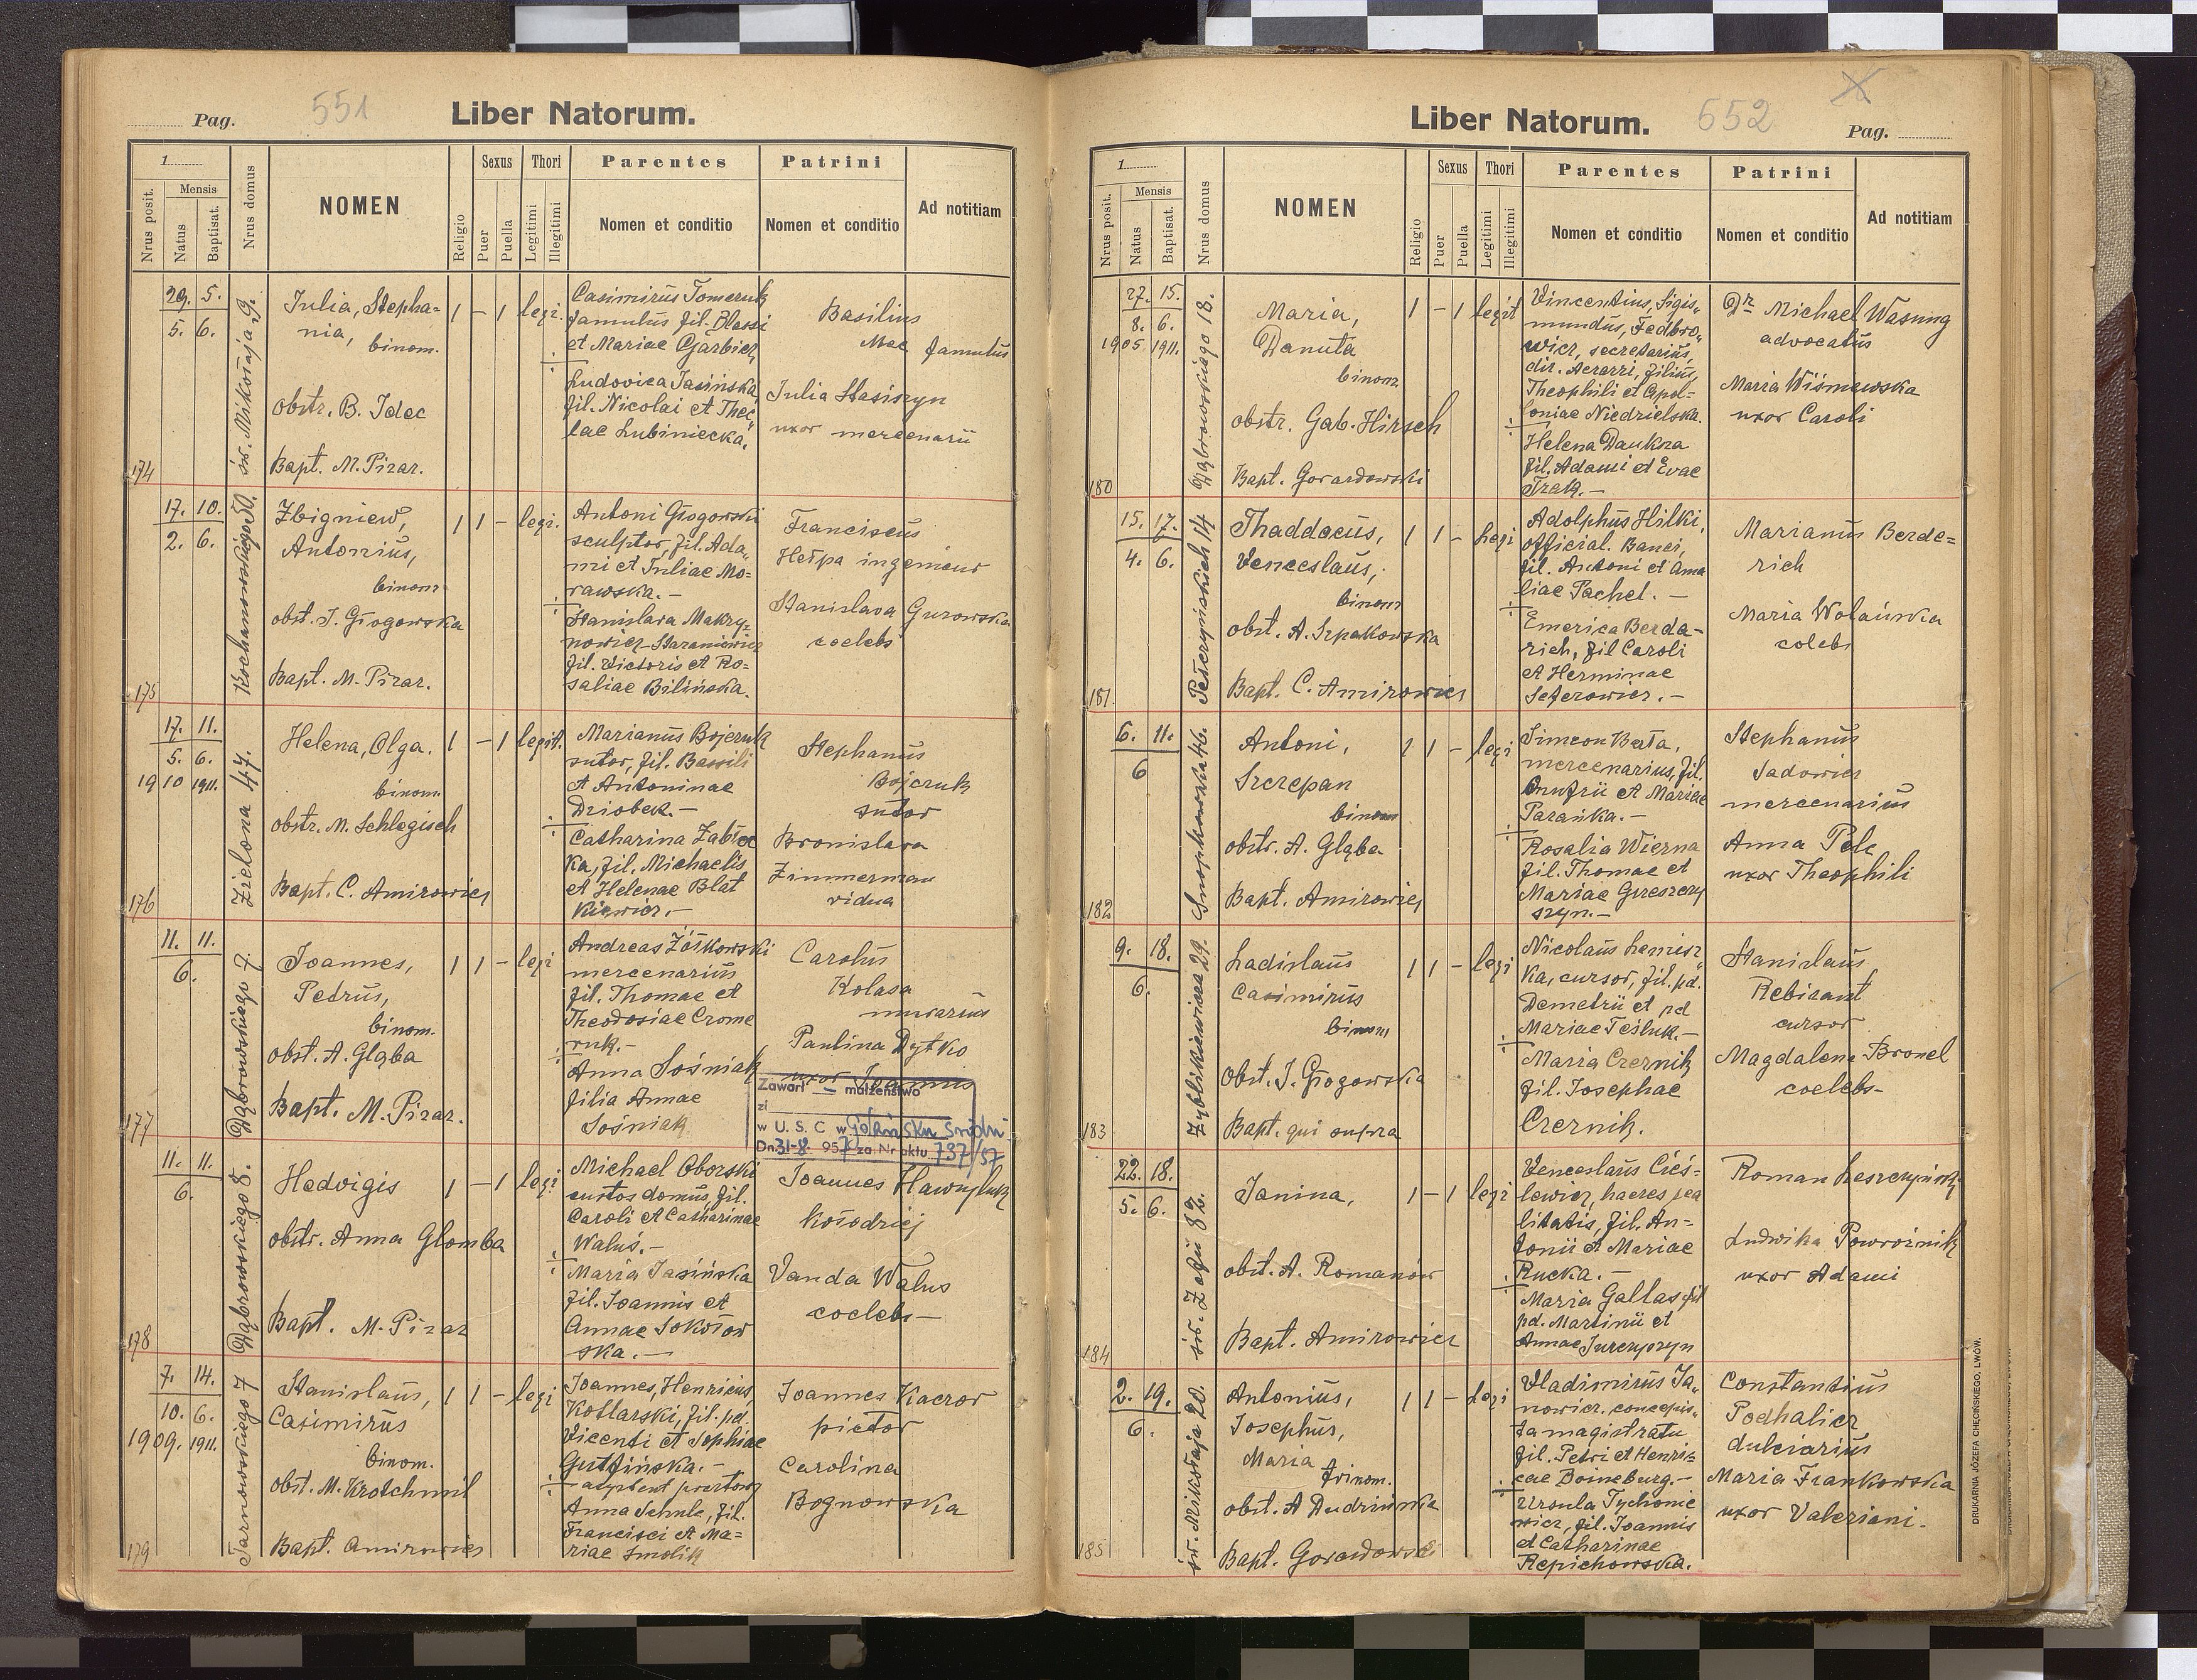 Pag. 551 Liber Natorum.
1
Nrus posit.
Mensis
Natus
Baptisat.
Nrus domus
NOMEN
Religio
Sexus
Puer
Puella
Thori
Legitimi
Illegitimi
Parentes
Nomen et conditio
Patrini
Nomen et conditio
Ad notitiam
174
29. 5.
5. 6.
św. Mikołaja 9.
Julia, Stepha=
nia, binom.
obstr. B. Idec
Bapt. M. Pizar.
1 - 1 legi.
Casimirus Tomeruk
famulus fil. Blassi
et Mariae Garbicz
Ludovica Jasińska,
fil. Nicolai et Thec
lae Lubiniecka.
Basilius
Mac famulus
Julia Stasiszyn
uxor mercenarii
175
17. 10.
2. 6.
Kochanowskiego 50.
Zbigniew,
Antonius,
binom
obst. J. Głogowska
Bapt. M. Pizar.
1 1 - legi.
Antoni Głogowski
sculptor, fil. Ada„
mi et Juliae Mo=
rawska. -
Stanislava Makry=
nowicz-Staraniewicz
fil. Victoris et Ro=
saliae Bilińska.
Franciscus
Hełpa ingenieur
Stanislava Gurowska
coelebs
176
17. 11.
5. 6.
1910 1911.
Zielona 47.
Helena, Olga.
binom.
obstr. M. Schlegisch
Bapt. C. Amirowicz
1 - 1 legit.
Marianus Bojczuk
sutor, fil. Bassili
et Antoninae
Dziobek. -
Catharina Żabiec
ka, fil. Michaelis
et Helenae Blat
kiewicz. -
Stephanus
Bojczuk
sutor
Bronislava
Zimmerman
vidua
177
11. 11.
6.
Dąbrowskiego 7.
Joannes,
Petrus,
binom.
obst. A. Głąba
Bapt. M. Pizar.
1 1 - legi
Andreas Żółkowski
mercenarius
fil. Thomae et
Theodosiae Crome
ruk. -
Anna Sośniak
filia Annae
Sośniak
Carolus
Kolasa
murarius
Paulina Dytko
uxor Joannis
Zawarł — małżeństwo
zi
w U. S. C w Gdańsku Śródm
Dn. 31-8. 957 za Nr aktu 737/57
178
11. 11.
6.
Dąbrowskiego 8.
Hedvigis
obstr. Anna Glomba
Bapt. M. Pizar
1 - 1 legi
Michael Oborski
custos domus, fil.
Caroli et Catharinae
Waluś. -
Maria Jasińska
fil. Joannis et
Annae Sokołow
ska. -
Joannes Hawryluk
kołodziej
Vanda Walus
coelebs -
179
7. 14.
10. 6.
1909. 1911.
Tarnowskiego 7
Stanislaus,
Casimirus
binom.
obst. M. Krotchmil
Bapt. Amirowicz
1 1 - legi
Joannes, Henricus,
Kotlarski, fil. pd.
Vicenti et Sophiae
Gutfińska. -
Anna Schulc, fil.
Francisci et Ma=
riae Smolik
Joannes Kaczor
pictor
Carolina
Bognowska
Liber Natorum. 652 Pag.
1
Nrus posit.
Mensis
Natus
Baptisat.
Nrus domus
NOMEN
Religio
Sexus
Puer
Puella
Thori
Legitimi
Illegitimi
Parentes
Nomen et conditio
Patrini
Nomen et conditio
Ad notitiam
180
27. 15.
8. 6.
1905 1911.
Dąbrowskiego 18.
Maria,
Danuta
binom.
obstr. Gab. Hirsch
Bapt. Gorardowski
1 - 1 legit
Vincentius, Sigis„
mundus, Fedbro„
wicz, secretarius,
dir. Aerarri, filius,
Theophili et Apol=
loniae Niedzielska.
Helena Daukza
fil. Adami et Evae
Trak. -
Dr Michael Wasung
advocatus
Maria Wiśniewska
uxor Caroli
181
15. 17.
4. 6.
Pełczyńskich 14
Thaddaeus,
Venceslaus,
binom
obst. A. Szpakowska
Bapt. C. Amirowicz
1 1 - legi
Adolphus Hilki,
official. Banci,
fil. Antoni et Ama
liae Pachel. -
Emerica Berda-
rich, fil Caroli
et Herminae
Seferowicz. -
Marianus Berde=
rich
Maria Wolańska
colebs
182
6. 11.
6
Snopkowska 46.
Antoni,
Szczepan
binom
obstr. A. Głąba
Bapt. Amirowicz
1 1 - legi
Simeon Barta,
mercenarius, fil.
Onufrii et Mariae
Parańka. -
Rosalia Wierna
fil. Thomae et
Mariae Greszczy
szyn. -
Stephanus
Sadowicz
mercenarius
Anna Pelc
uxor Theophili
183
9. 18.
6.
Zyblikiewicza 29.
Ladislaus
Casimirus
binom
Obst. J. Głogowska
Bapt. qui supra
1 1 - legi
Nicolaus Lemisz„
ka, cursor, fil. pd.
Demetrii et pd
Mariae Teśluk. -
Maria Czernik
fil. Josephae
Czernik.
Stanislaus
Rebizant
cursor
Magdalena Bronel
coelebs -
184
22. 18.
5. 6.
św. Zofji 82.
Janina,
obst. A. Romanów
Bapt. Amirowicz
1 - 1 legi
Venceslaus Cieś=
lewicz, haeres rea
litatis, fil. An=
tonii et Mariae
Rucka. -
Maria Gallas fil
pd. Martinii et
Annae Jurczyszyn
Roman Leszczyński
Ludwika Powroźnik
uxor Adami
185
2. 19.
6.
św. Mikołaja 20.
Antonius,
Josephus,
Maria
trinom.
obst. A Dudzińska
Bapt. Gorardowski
1 1 - legi
Vladimirus Ja„
nowicz. concepis„
ta magistratu
fil. Petri et Henri=
cae Boineburg. -
Ursula Tychonie
wicz, fil. Joannis
et Catharinae
Repichowska.
Constantius
Podhalicz
dulciarius
Maria Frankowska
uxor Valeriani.
DRUKARNIA JÓZEFA CHĘCIŃSKIEGO, LWÓW.